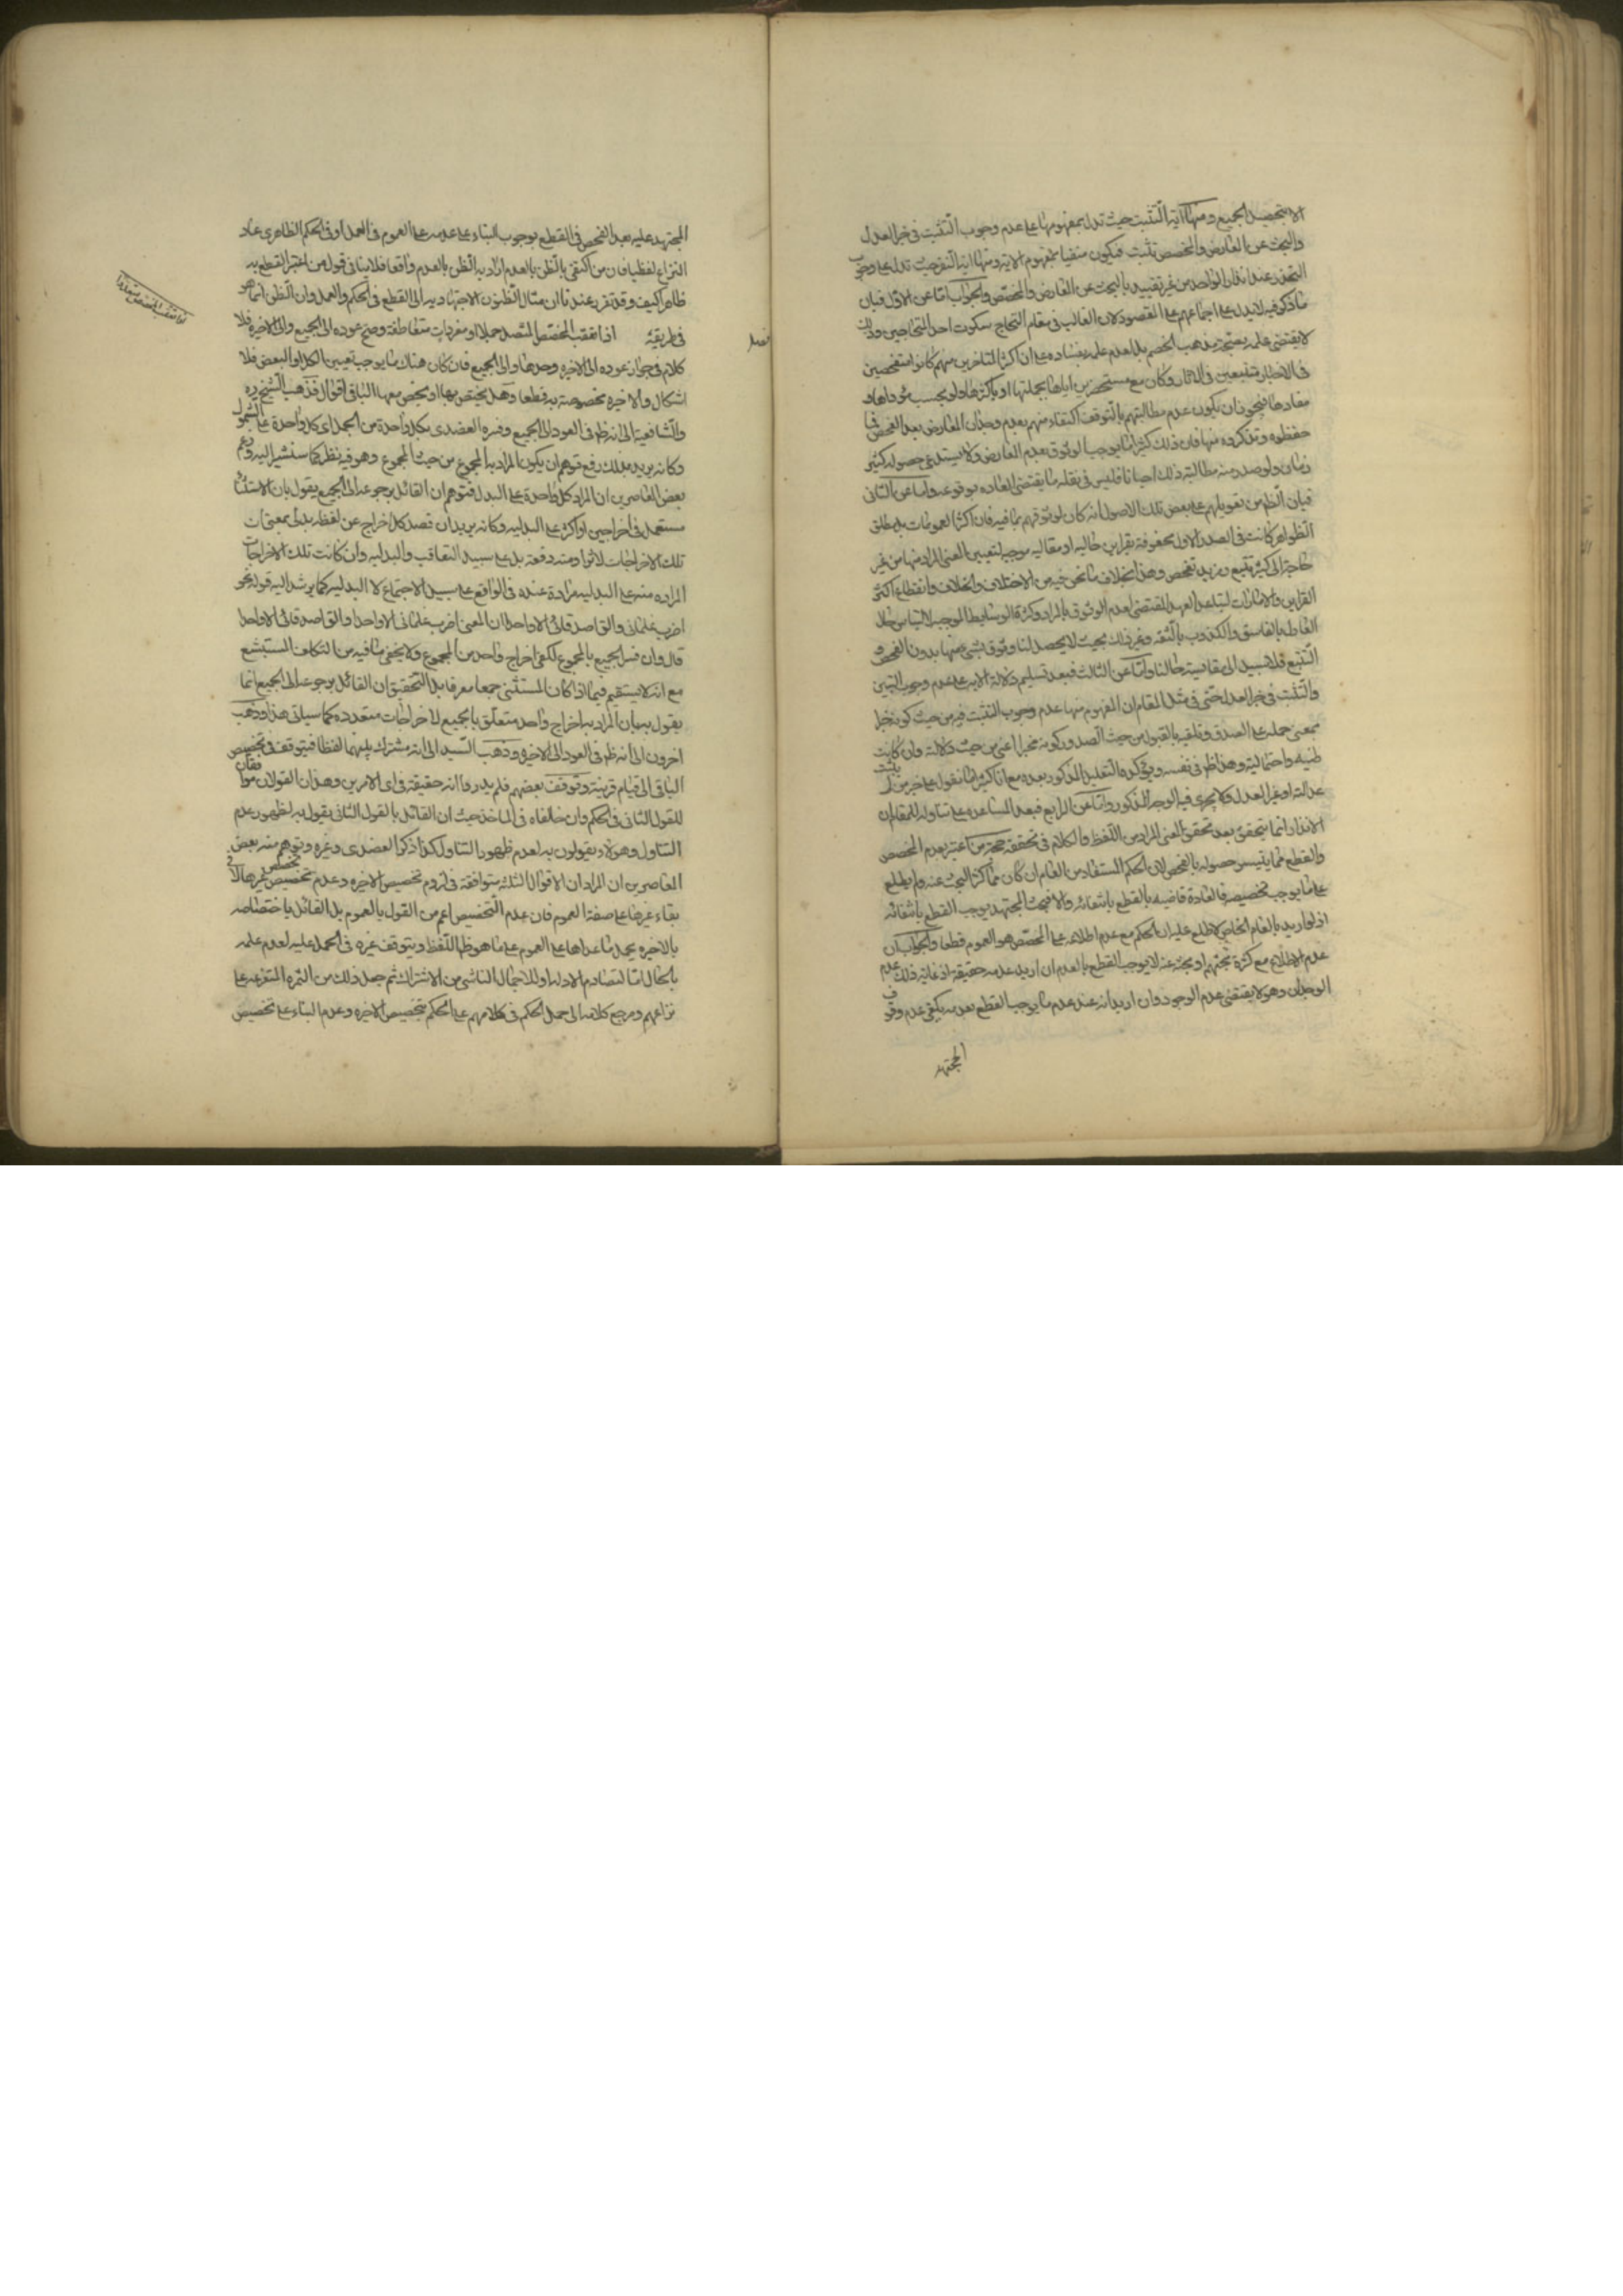 الا بتحصيل الجميع ومنها آية التثبت حيث تدل بمفهومها على عدم وجوب التثبت فى خبر العدل
والبحث عن المعارض والمخصص تثبت فيكون منفيا بمفهوم الاية ومنها اية النفر حيث تدل على وجوب
التحذر عند انذار الواحد من غير تقييد بالبحث عن المعارض والمخصص والجواب اما عن الاول فبان
ما ذكر فيه لا يدل على اجماعهم على المقصود لان الغالب فى مقام التحاج سكوت احد المتحاجين وذلك
لا يقتضى علمه بصحة مذهب الخصم بل عدم علمه بفساده على ان اكثر المتاخرين منهم كانوا متفحصين
فى الاخبار متتبعين فى الاثار وكان مع مستحضرين اياها بجملتها او باكثرها ولو بحسب مؤداها و
مفادها فيجوز ان يكون عدم مطالبتهم بالتوقف اكتفاء منهم بعدم وجدان المعارض بعد الفحص فيما
حفظوه وتذكروه منها فان ذلك كثيرا ما يوجب الوثوق بعدم المعارض ولا يستدعى حصوله كثير
زمان ولو صدر منه مطالبة ذلك احيانا فليس فى نقله ما يقتضى العادة بوقوعه واما عن الثانى
فبان الظ من تعويلهم على بعض تلك الاصول انه كان لوثوقهم بما فيه فان اكثر العمومات بل مطلق
الظواهر كانت فى الصدر الاول محفوفة بقراين حالية او مقالية موجبة لتعيين المعنى المراد منها من غير
حاجة الى كثير تتبع ومزيد تفحص وهذا بخلاف ما نحن فيه من الاختلاف والخلاف وانقطاع اكثر
القراين والامارات لتباعد العهد المقتضى لعدم الوثوق بالمراد وكثرة الوسايط الموجبة لالتباس حال
الغالط بالفاسق والكذوب بالثقة وغير ذلك بحيث لا يحصل لنا وثوق بشئ منها بدون الفحص و
التتبع فلا سبيل الى مقايسة حالنا واما عن الثالث فبعد تسليم دلالة الاية على عدم وجوب التبين
والتثبت فى خبر العدل حتى فى مثل المقام ان المفهوم منها عدم وجوب التثبت فيه من حيث كونه خبرا
بمعنى حمله على الصدق وتلقيه بالقبول من حيث الصدور وكونه مخبرا اعنى من حيث دلالته وان كانت
ظنية واحتمالية وهذا ظ فى نفسه ويؤكده التعليل المذكور بعده مع انا كثيرا ما نقول على خبر من لم يثبت
عدالته او غير العدل ولا يجرى فيه الوجه المذكور واما عن الرابع فبعد المساعدة على تناوله للمقام ان
الانذار انما يتحقق بعد تحقق المعنى المراد من اللفظ والكلام فى تحققه حجة من اعتبر بعدم المخصص
والقطع مما يتيسر حصوله بالفحص لان الحكم المستفاد من العام ان كان مما كثر البحث عنه ولم يطلع
على ما يوجب تخصيصه فالعادة قاضية بالقطع بانتفائه والا فبحث المجتهد يوجب القطع بانتفائه
اذ لو اريد بالعام الخاص لاطلع عليه ان الحكم مع عدم اطلاعه على المخصص هو العموم قطعا والجواب ان
عدم الاطلاع مع كثرة بحثهم او بحثه عنه لا يوجب القطع بالعدم ان اريد عدمه حقيقة اذ غاية ذلك عدم
الوجدان وهو لا يقتضى عدم الوجود وان اريد انه عند عدم ما يوجب القطع بعدمه يكفى عدم وقوف
المجتهد
المجتهد عليه بعد الفحص فى القطع بوجوب البناء على عدمه على العموم فى العمل او فى الحكم الظاهرى عاد
النزاع لفظيا فان من اكتفى بالظن بالعدم اراد به الظن بالعدم واقعا فلا ينافى قول من اعتبر القطع به
ظاهرا كيف وقد تقرر عندنا ان مثال الظنون الاجتهادية الى القطع فى الحكم والعمل وان الظن انما هو
فى طريقه اذا تعقب المخصص المتصل جملا او مفردات متعاطفة وصح عوده الى الجميع والى الاخيرة فلا
فصل
اذا تعقب المخصص متعددا
كلام فى جواز عوده الى الاخيرة وحدها والى الجميع فان كان هناك ما يوجب تعيين الكل او البعض فلا
اشكال والاخيرة مخصوصة به قطعا وهل يختص بها او يخص معها الباقى اقوال فذهب الشيخ ره
والشافعية الى انه ظ فى العود الى الجميع وفسره العضدى بكل واحدة من الجمل اى كل واحدة على الشمول
وكانه يريد بذلك رفع توهم ان يكون المراد به المجموع من حيث المجموع وهو فيه نظر كما سنشير اليه وزعم
بعض المعاصرين ان المراد كل واحدة على البدل فتوهم ان القائل برجوعه الى الجميع يقول بان الاستثناء
مستعمل فى اخراجين او اكثر على البدلية وكانه يريد ان قصد كل اخراج عن لفظه بدلى بمعنى ان
تلك الاخراجات لا تراد منه دفعة بل على سبيل التعاقب والبدلية وان كانت تلك الاخراجات
المرادة منه على البدلية مرادة عنده فى الواقع على سبيل الاجتماع لا البدلية كما يرشد اليه قوله نحو
اضرب غلمانى والق اصدقائى الا واحدا ان المعنى اضرب غلمانى الا واحدا والق اصدقائى الا واحدا
قال وان فسر الجميع بالمجموع لكفى اخراج واحد من المجموع ولا يخفى ما فيه من التكلف المستبشع
مع انه لا يستقيم فيما اذا كان المستثنى جمعا معرفا بل التحقيق ان القائل برجوعه الى الجميع انما
يقول بان المراد به اخراج واحد متعلق بالجميع لا اخراجات متعددة كما سياتى هذا وذهب
اخرون الى انه ظ فى العود الى الاخيرة وذهب السيد الى انه مشترك بينهما لفظا فيتوقف فى تخصيص
الباقى الى قيام قرينة وتوقف بعضهم فلم يدروا انه حقيقة فى اى الامرين وهذان القولان موافقان
للقول الثانى فى الحكم وان خالفاه فى الماخذ حيث ان القائل بالقول الثانى يقول به لظهور عدم
التناول وهؤلاء يقولون به لعدم ظهور التناول كذا ذكر العضدى وغيره وتوهم منه بعض
المعاصرين ان المراد ان الاقوال الثلثة متوافقة فى لزوم تخصيص الاخيرة وعدم تخصيص غيرها لا فى
بقاء غيرها على صفة العموم فان عدم التخصيص اعم من القول بالعموم بل القائل باختصاصه
بالاخيرة يحمل ما عداها على العموم على ما هو ظ اللفظ ويتوقف غيره فى الحمل عليه لعدم علمه
بالحال اما لتصادم الادلة او للاجمال الناشى من الاشتراك ثم جعل ذلك من الثمرة المتفرعة على
نزاعهم ومرجع كلامه الى حمل الحكم فى كلامهم على الحكم بتخصيص الاخيرة وعدم البناء على تخصيص